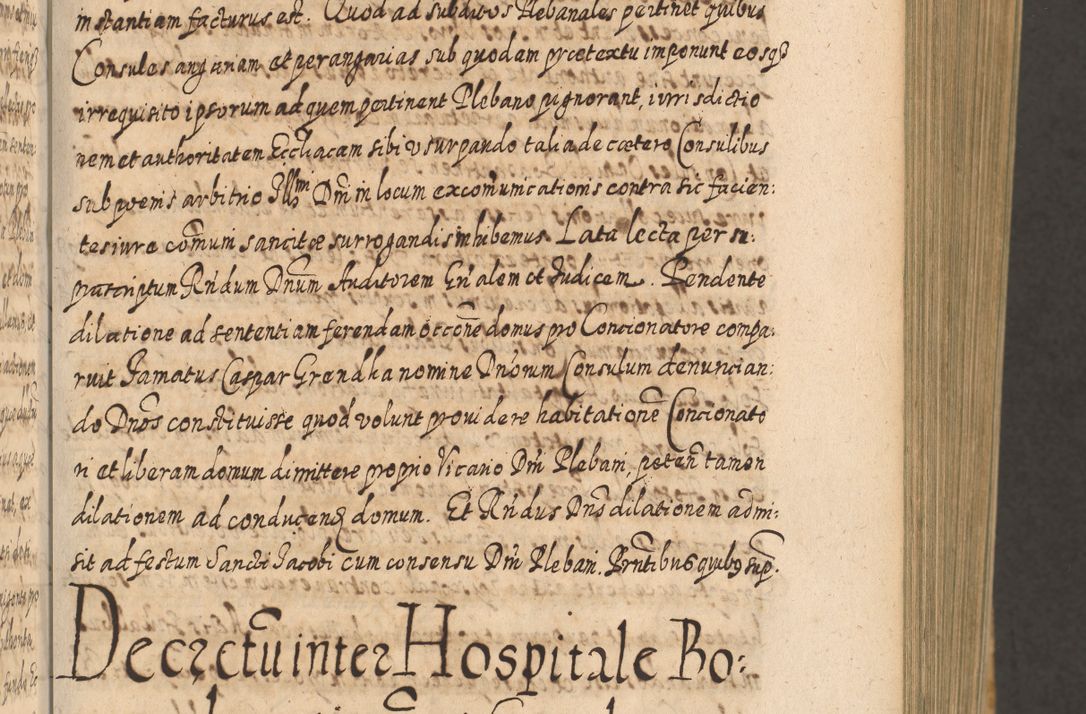 instantiam facturus est. Quod ad subditos Plebanales pertinet quibus
Consules angariam et perangarias sub quodam prætextu imponunt eosqꝫ
irrequisito ipsorum ad quem pertinent Plebano pignorant, iurisdictio
nem et authoritatem Ecclãacam sibi usurpando talia de cœtero Consulibus
sub poenis arbitrio Illmi Dm̃ in locum excom̃unicationis contra sic facien:
tes iure com̃uni sancitæ surrogandis inhibemus. Lata lecta per su:
prascriptum Rñdum Dnum̃ Auditorem Gñalem et Judicem. Pendente
dilatione ad sententiam ferendam occõne domus pro Concionatore compa:
ruit Famatus Caspar Grendka nomine Dnõrum Consulum denuncian:
do Dnõs constituisse quod volunt providere habitationẽ Concionato
ri et liberam domum dimittere proprio Vicario Dñi Plebani, peteñ tamen
dilationem ad conducendꝫ domum. Et Rñdus Dns̃ dilationem admi:
sit ad festum Sancti Jacobi cum consensu Dñi Plebani. Prñtibus quibus sup̃.
Decretũ inter Hospitale Bo: